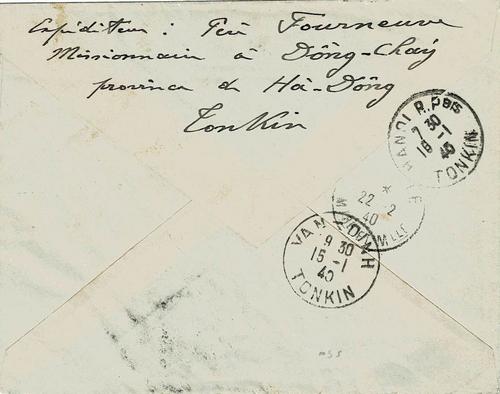 Expéditeur : Père Fourneuve
Missionnaire à Dông-Chaý
province de Hà-Dông
Tonkin
HANOI R.P
7 30
16 -1
40
TONKIN
22 -2
40
VAN DINH
9 30
15 -1
40
TONKIN